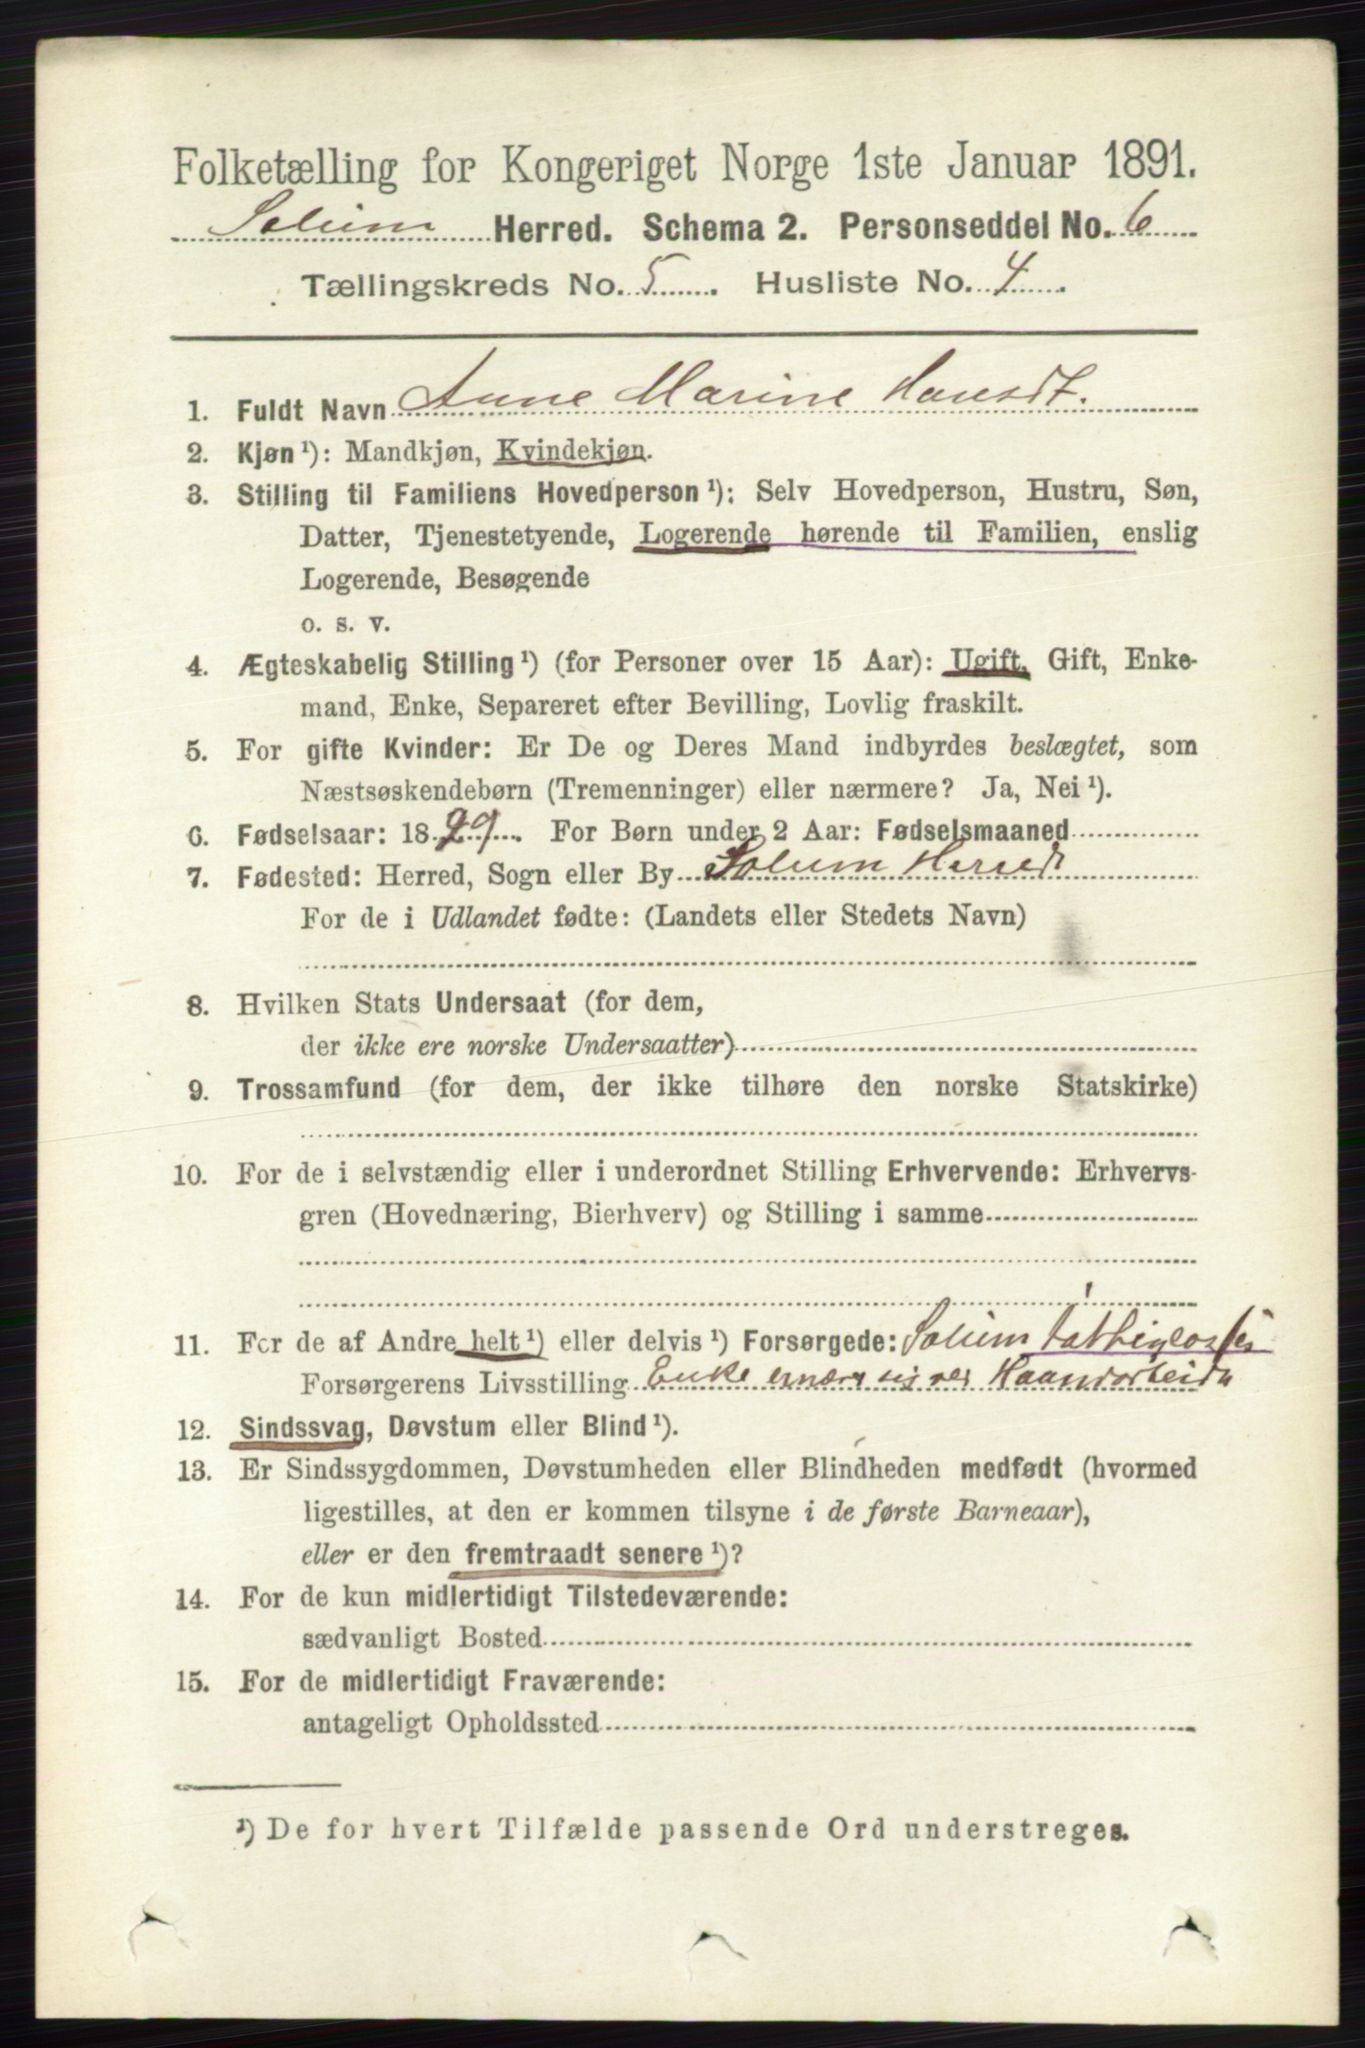 Folketælling for Kongeriget Norge 1ste Januar 1891.
Solum Herred. Schema 2. Personseddel No. 6
Tællingskreds No. 5 Husliste No. 4
1. Fuldt Navn Anne Marine Hansdt.
2. Kjøn ¹): Mandkjøn, Kvindekjøn.
3. Stilling til Familiens Hovedperson ¹): Selv Hovedperson, Hustru, Søn,
Datter, Tjenestetyende, Logerende hørende til Familien, enslig
Logerende, Besøgende
o. s. v.
4. Ægteskabelig Stilling ¹) (for Personer over 15 Aar): Ugift, Gift, Enke-
mand, Enke, Separeret efter Bevilling, Lovlig fraskilt.
5. For gifte Kvinder: Er De og Deres Mand indbyrdes beslægtet, som
Næstsøskendebørn (Tremenninger) eller nærmere? Ja, Nei ¹).
6. Fødselsaar: 1829. For Børn under 2 Aar: Fødselsmaaned
7. Fødested: Herred, Sogn eller By Solum Herred
For de i Udlandet fødte: (Landets eller Stedets Navn)
8. Hvilken Stats Undersaat (for dem,
der ikke ere norske Undersaatter)
9. Trossamfund (for dem, der ikke tilhøre den norske Statskirke)
10. For de i selvstændig eller i underordnet Stilling Erhvervende: Erhvervs-
gren (Hovednæring, Bierhverv) og Stilling i samme
11. For de af Andre helt ¹) eller delvis ¹) Forsørgede: Solum
Forsørgerens Livsstilling Enke ernærer sig ved Haandarbeide
12. Sindssvag, Døvstum eller Blind ¹).
13. Er Sindssygdommen, Døvstumheden eller Blindheden medfødt (hvormed
ligestilles, at den er kommen tilsyne i de første Barneaar),
eller er den fremtraadt senere ¹)?
14. For de kun midlertidigt Tilstedeværende:
sædvanligt Bosted
15. For de midlertidigt Fraværende:
antageligt Opholdssted
¹) De for hvert Tilfælde passende Ord understreges.